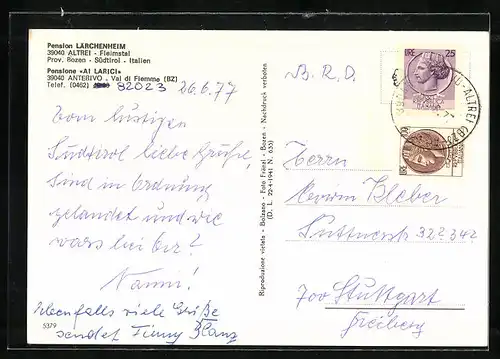 Pension LÄRCHENHEIM
39040 ALTREI - Fleimstal
Prov. Bozen - Südtirol - Italien
Pensione «AI LARICI»
39040 ANTERIVO - Val di Fiemme (BZ)
Telef. (0462) 82023
26.6.77
Vom lustigen
Südtirol liebe Grüße,
Sind in Ordnung
gelandet und wie
wars bei
Nanni!
Ebenfalls viele Grüße
sendet
5379
Riproduzione vietata - Bolzano - Foto Fränzl - Bozen - Nachdruck verboten
(D. L. 22-4-1941 N. 633)
B. R. D.
LIRE 25
ALTREI
Herrn
Bleher
Suttnerstr 322342
700 Stuttgart
Freiberg